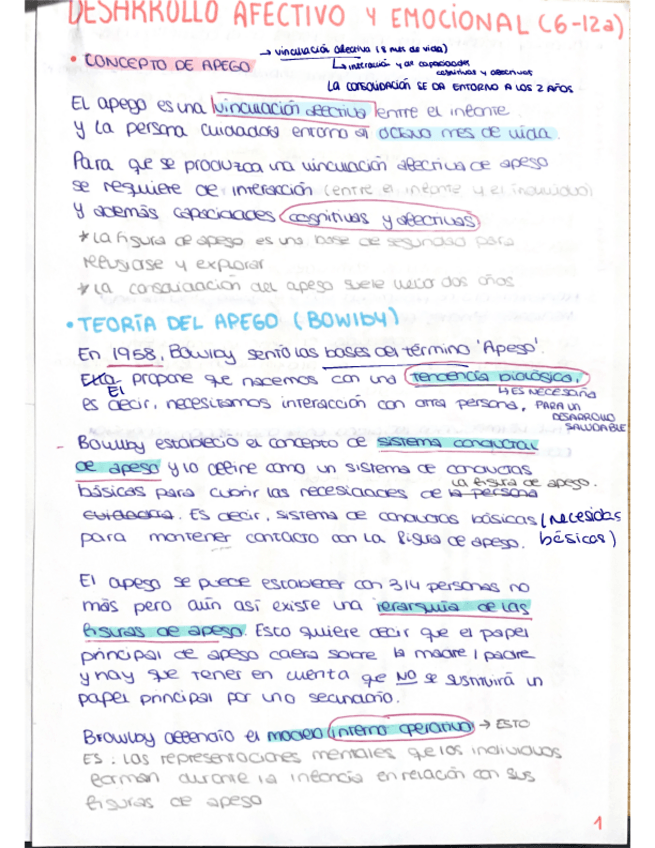 DESARROLLO AFECTIVO Y EMOCIONAL (6-12a)
• CONCEPTO DE APEGO → vinculación afectiva (8 mes de vida)
↳ interacción y de capacidades
cognitivas y afectivas
LA CONSOLIDACIÓN SE DA ENTORNO A LOS 2 AÑOS
El apego es una vinculación afectiva entre el infante
y la persona cuidadora entorno al octavo mes de vida.
Para que se produzca una vinculación afectiva de apego
se requiere de interacción (entre el infante y el individuo)
y además capacidades cognitivas y afectivas
* La figura de apego es una base de seguridad para
refugiarse y explorar
* La consolidación del apego suele llevar dos años
• TEORÍA DEL APEGO (BOWlBY)
En 1958, Bowlby sentó las bases del término 'Apego'.
Esta propone que nacemos con una tendencia biológica,
El ↳ ES NECESARIA
es decir, necesitamos interacción con otra persona, PARA UN
DESARROLLO
SALUDABLE
- Bowlby estableció el concepto de sistema conductual
de apego y lo define como un sistema de conductas
la figura de apego.
básicas para cubrir las necesidades de la persona
cuidadora. Es decir, sistema de conductas básicas (necesidas
para mantener contacto con la figura de apego. básicas)
El apego se puede establecer con 3/4 personas no
más pero aún así existe una jerarquía de las
figuras de apego. Esto quiere decir que el papel
principal de apego caerá sobre la madre / padre
y hay que tener en cuenta que NO se sustituirá un
papel principal por uno secundario.
Browlby defendió el modelo interno operativo → ESTO
ES: las representaciones mentales que los individuos
forman durante la infancia en relación con sus
figuras de apego
1